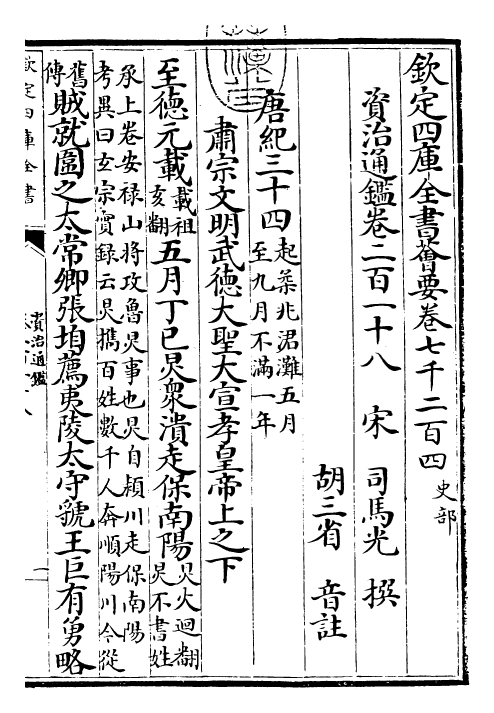 欽定四庫全書薈要卷七千二百四 史部
資治通鑑卷二百一十八 宋 司馬光 撰
胡三省 音註
唐紀三十四 起柔兆涒灘五月
至九月不滿一年
肅宗文明武德大聖大宣孝皇帝上之下
至德元載 載祖
亥翻 五月丁巳炅衆潰走保南陽 炅火迥翻
炅不書姓
承上卷安禄山將攻魯炅事也炅自潁川走保南陽
考異曰玄宗實録云炅攜百姓數千人奔順陽川今從
舊
傳 賊就圍之太常卿張垍薦夷陵太守虢王巨有勇略
欽定四庫全書
資治通鑑